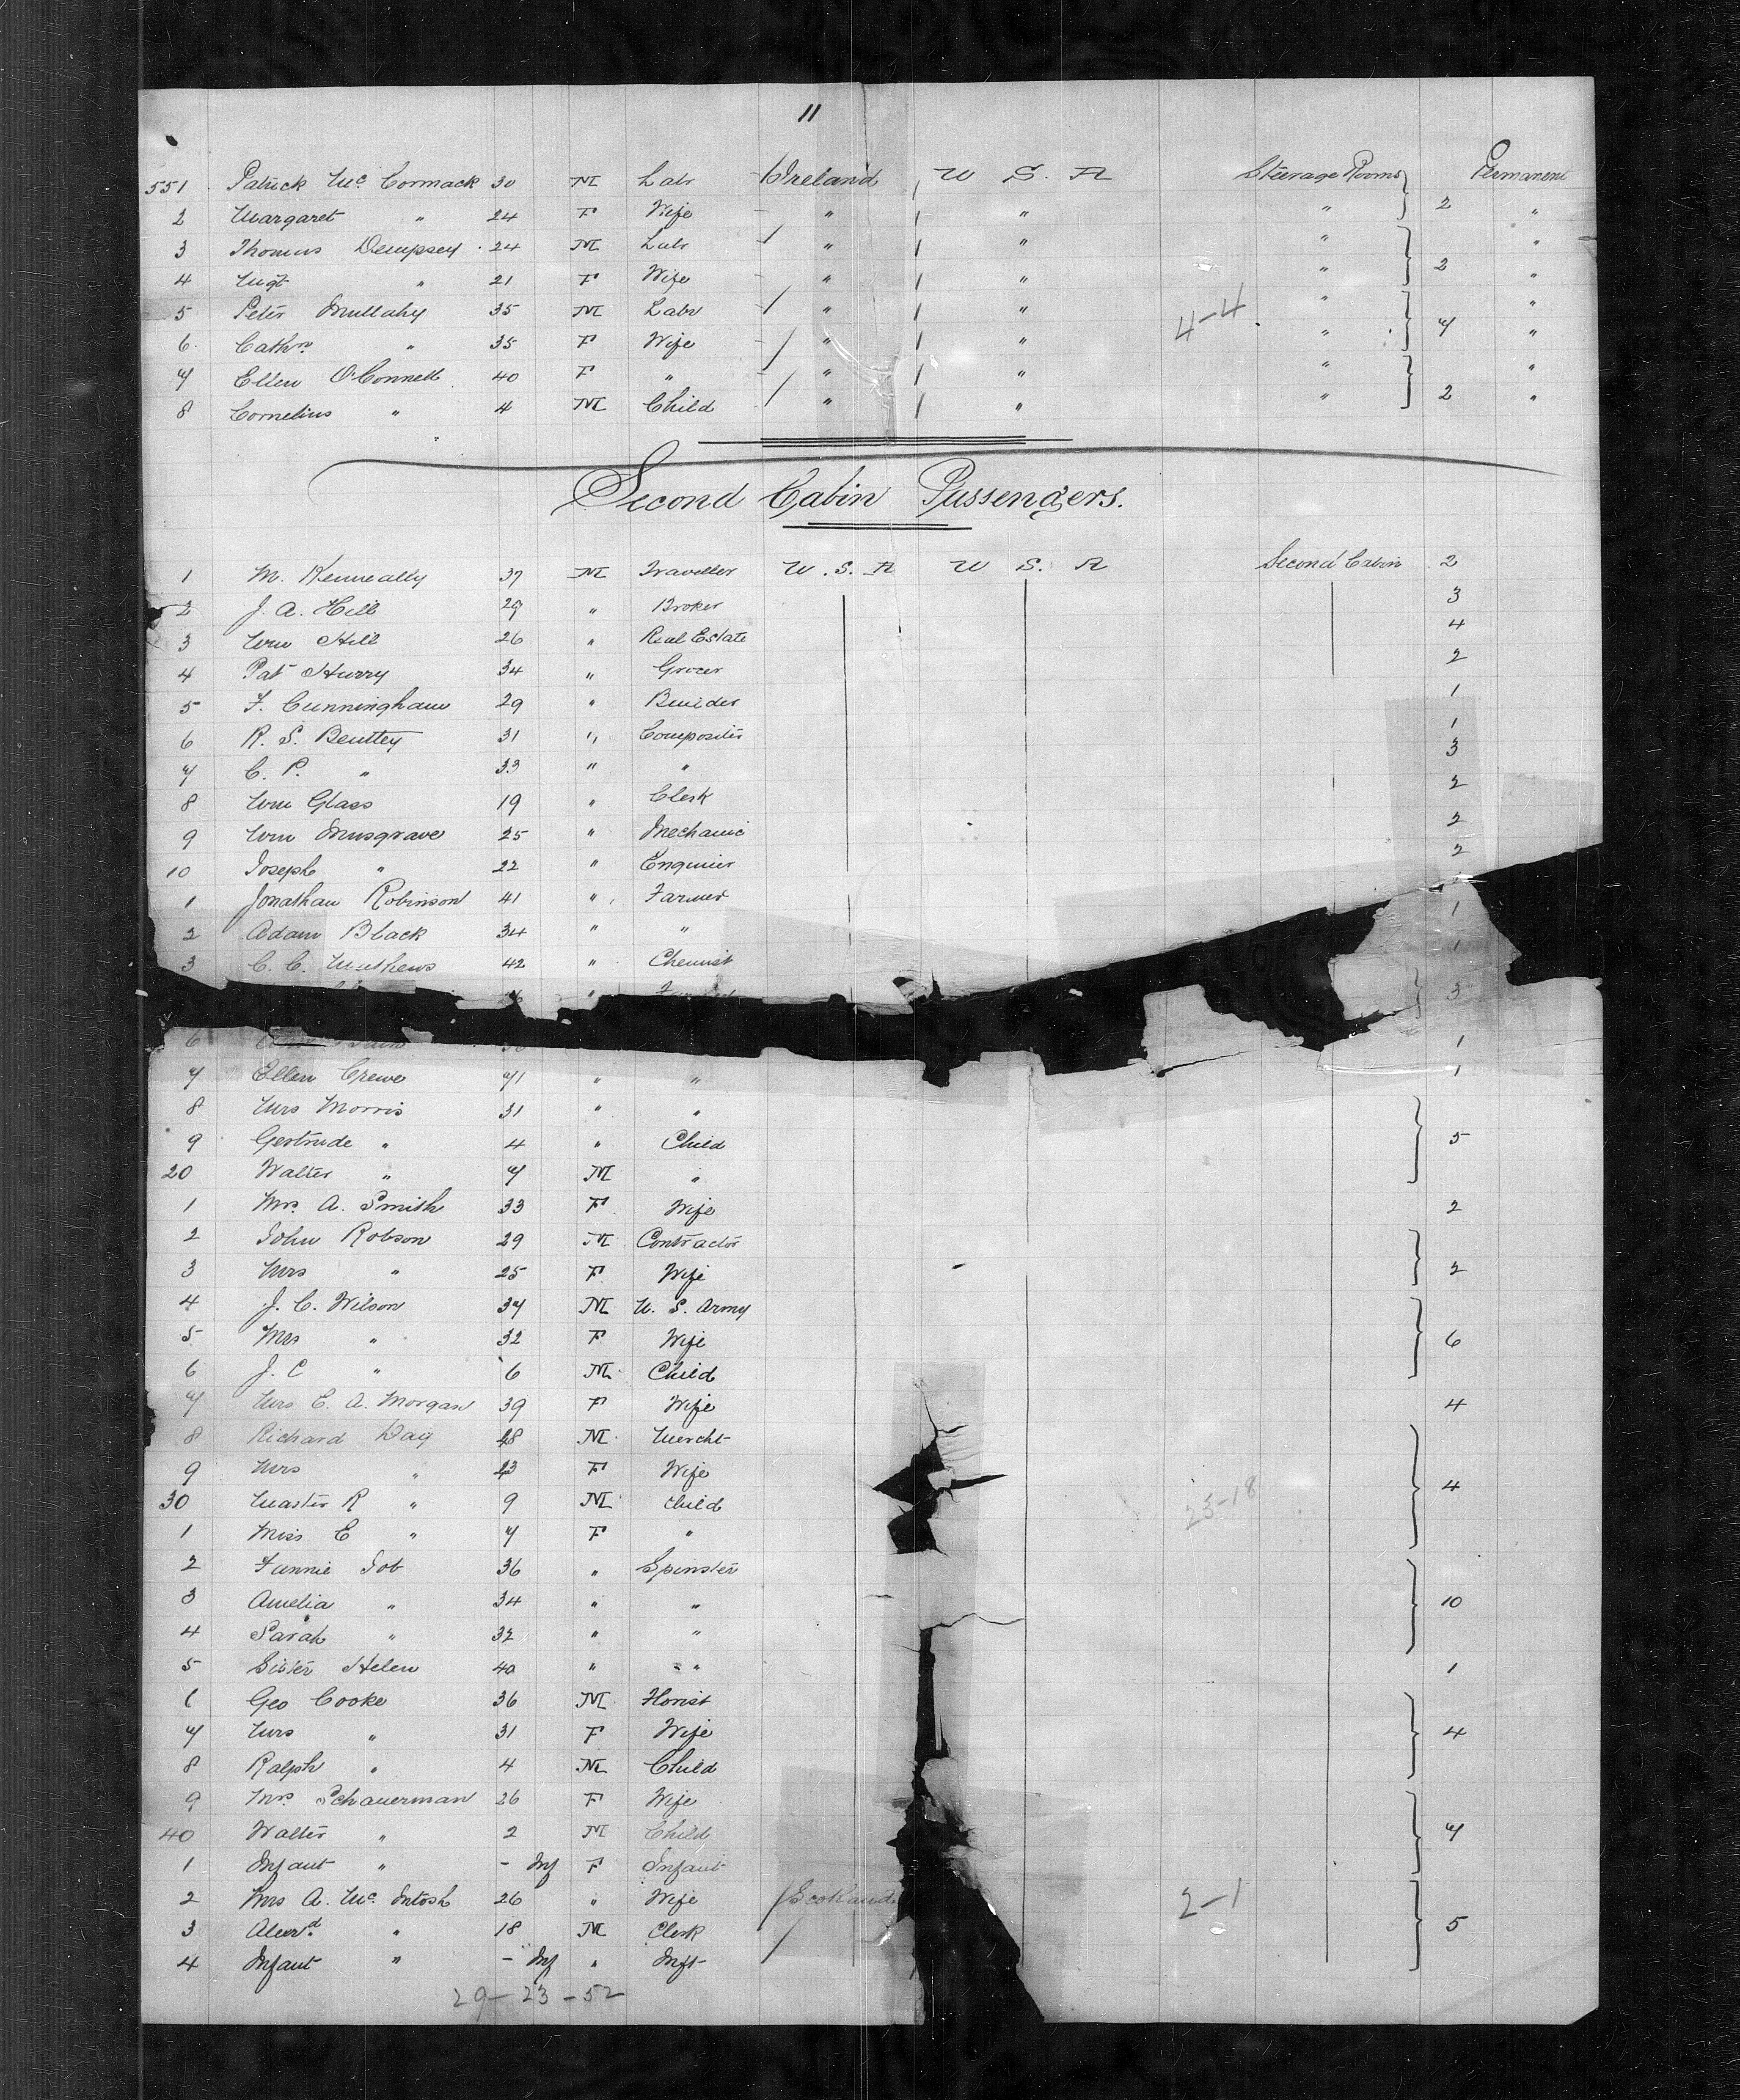 11
551 Patrick McCormack 30 M Labr Ireland U S A Steerage Rooms 2 Permanent
2 Margaret " 24 F Wife " " " "
3 Thomas Dempsey 24 M Labr " " " 2 "
4 Mgt " 21 F Wife " " " "
5 Peter Mullahy 35 M Labr " " 4-4 " 7 "
6 Cathn " 35 F Wife " " " "
7 Ellen O'Connell 40 F " " " " 2 "
8 Cornelius " 4 M Child " " " "
Second Cabin Passengers.
1 M. Kenneally 37 M Traveller U.S.A U S. A Second Cabin 2
2 J. A. Hill 29 " Broker 3
3 Wm Hill 26 " Real Estate 4
4 Pat Hurry 34 " Grocer 2
5 F. Cunningham 29 " Builder 1
6 R. S. Benttey 31 " Compositer 1
7 C. P. " 33 " " 3
8 Wm Glass 19 " Clerk 2
9 Wm Musgrave 25 " Mechanic 2
10 Joseph " 22 " Enginier 2
1 Jonathan Robinson 41 " Farmer
2 Adam Black 34 " " 1
3 C. C. Mathews 42 " Chemist 1
" 3
6 1
7 Ellen Crewe 71 " " 1
8 Mrs Morris 31 " "
9 Gertrude " 4 " Child 5
20 Walter " 7 M "
1 Mrs. A. Smith 33 F Wife 2
2 John Robson 29 M Contractor
3 Mrs " 25 F Wife 2
4 J. C. Wilson 37 M U. S. Army
5 Mrs " 32 F Wife 6
6 J. C " 6 M Child
7 Mrs C. A. Morgan 39 F Wife 4
8 Richard Day 48 M Mercht
9 Mrs " 43 F Wife
30 Master R " 9 M Child 23-18 4
1 Miss E " 7 F "
2 Fannie Job 36 " Spinster
3 Amelia " 34 " " 10
4 Sarah " 32 " "
5 Sister Helen 40 " " 1
6 Geo Cooke 36 M Florist
7 Mrs " 31 F Wife 4
8 Ralph " 4 M Child
9 Mrs. Schauerman 26 F Wife
40 Walter " 2 M Child 7
1 Infant " - Inf F Infant
2 Mrs A. Mc Intosh 26 " Wife Scotland 2-1
3 Alexrd " 18 M Clerk 5
4 Infant " - Inf " Inft
29-23-52